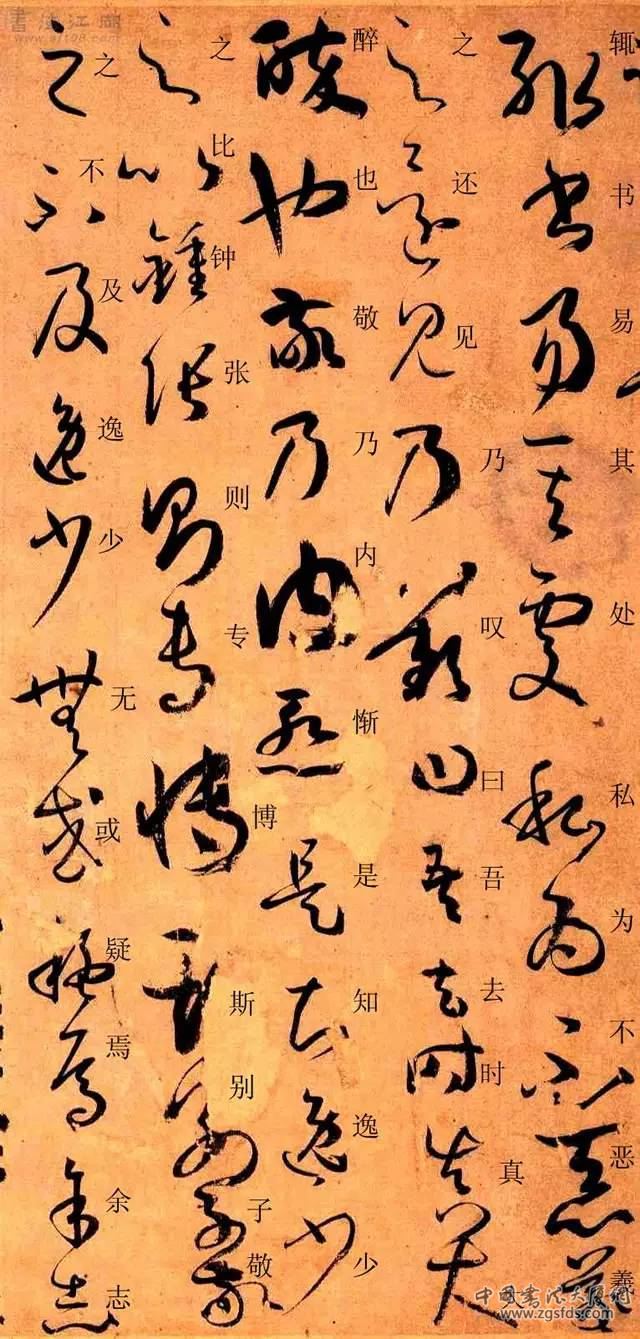 辄书易其处私为不恶羲
之还见乃叹曰吾去时真大
醉也敬乃内惭是知逸少
之比钟张则专博斯别子敬
之不及逸少无或疑焉余志
書法江湖
www.sf108.com
www.zgsfds.com